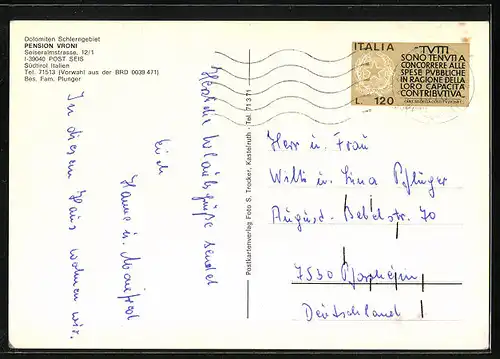 Dolomiten Schlerngebiet
PENSION VRONI
Seiseralmstrasse, 12/1
I-39040 POST SEIS
Südtirol Italien
Tel. 71513 (Vorwahl aus der BRD 0039 471)
Bes. Fam. Plunger
Herzliche Urlaubsgrüße sendet
Euch
Hanne u. Manfred
In diesem Haus wohnen wir.
Postkartenverlag Foto S. Trocker, Kastelruth - Tel. 71371
ITALIA
TVTTI
SONO TENVTI A
CONCORRERE ALLE
SPESE PVBBLICHE
IN RAGIONE DELLA
LORO CAPACITÀ
CONTRIBVTIVA.
L. 120
Herr u. Frau
Willi u. Lina Pflüger
August-Bebelstr. 70
7530 Pforzheim
Deutschland